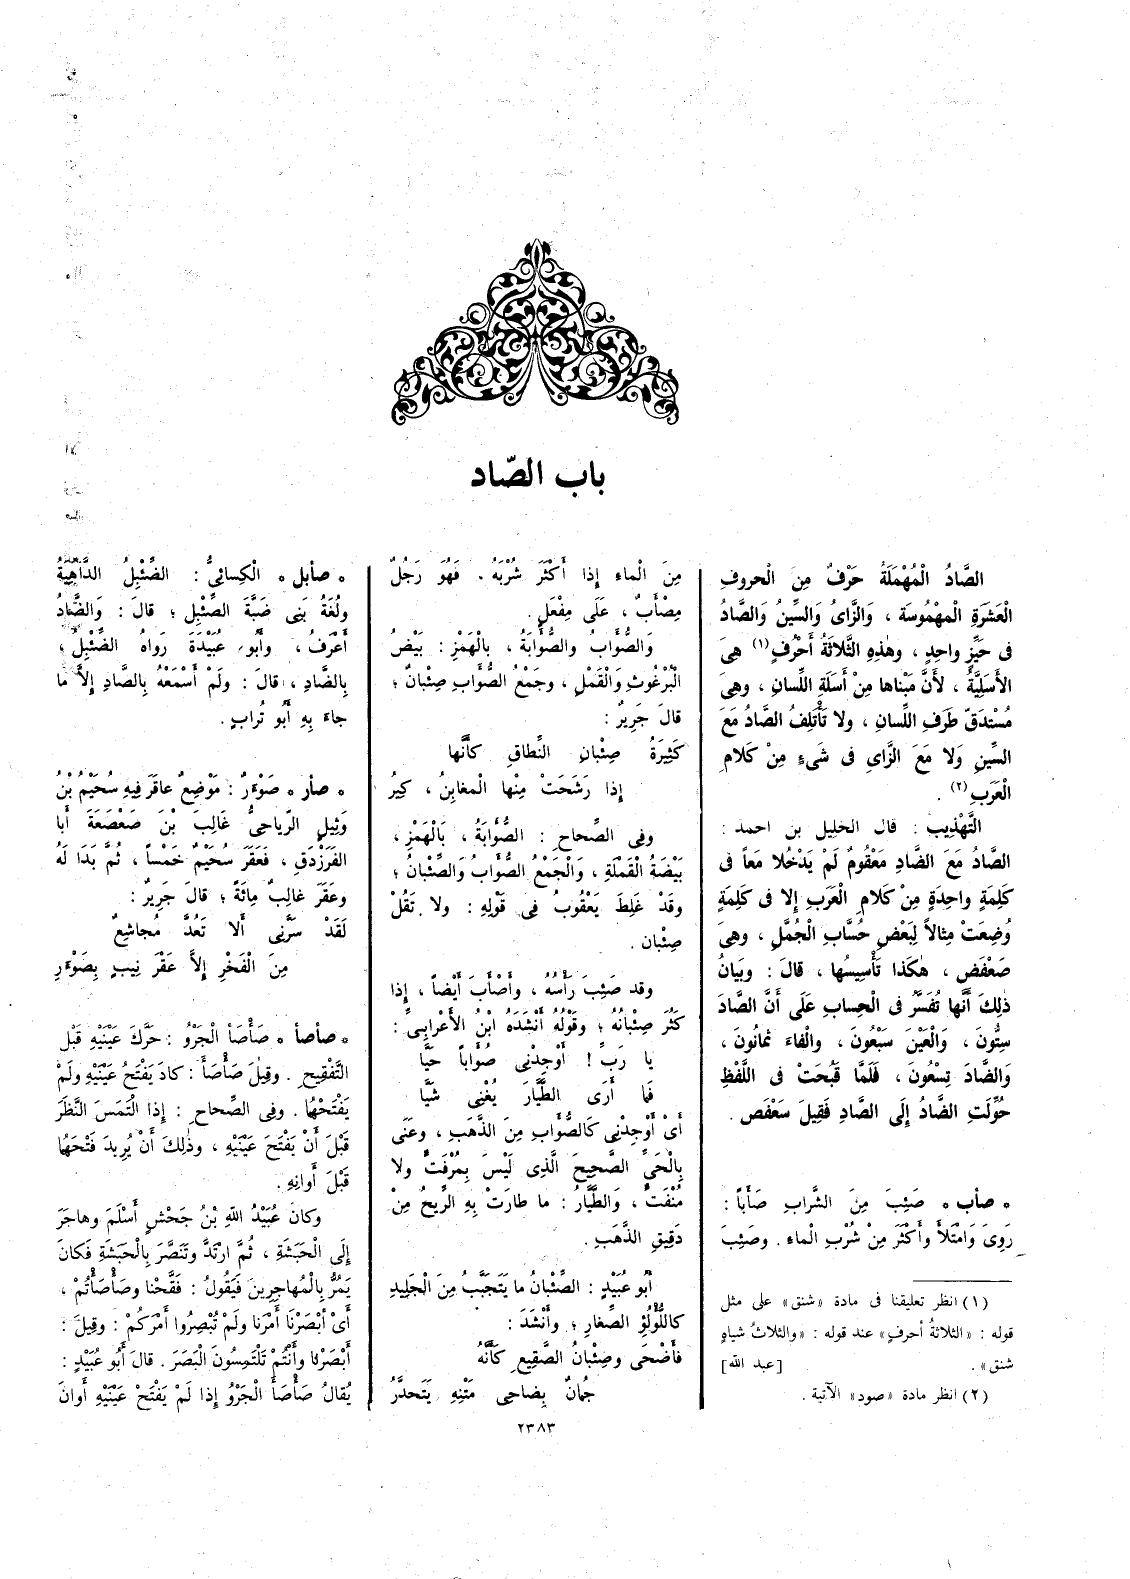 باب الصّاد
الصَّادُ الْمُهْمَلَةُ حَرْفٌ مِنَ الْحروفِ
الْعَشَرَةِ الْمهْمُوسَةِ ، وَالزَّاىُ وَالسِّينُ وَالصَّادُ
فى حَيِّزٍ واحِدٍ ، وهٰذِهِ الثَّلاثَةُ أَحْرُفٍ (١) هِىَ
الأَسَلِيَّةُ ، لأَنَّ مَبْدَأها مِنْ أَسَلَةِ اللِّسانِ ، وهِىَ
مُسْتَدَقُّ طَرَفِ اللِّسانِ ، ولا تَأْتَلِفُ الصَّادُ مَعَ
السِّينِ وَلا مَعَ الزَّاىِ فى شَىءٍ مِنْ كَلامِ
الْعَرَبِ (٢) .
التَّهْذِيبُ : قال الخليل بن احمد :
الصَّادُ مَعَ الضَّادِ مَعْقُومٌ لَمْ يَدْخُلا مَعاً فى
كَلِمَةٍ واحِدَةٍ مِنْ كَلامِ الْعَرَبِ إِلا فى كَلِمَةٍ
وُضِعَتْ مِثالاً لِبَعْضِ حُسَّابِ الْجُمَّلِ ، وهِىَ
صَعْفَض ، هٰكَذا تَأْسِيسُها ، قالَ : وبَيانُ
ذٰلِكَ أَنَّها تُفَسَّرُ فى الْحِسابِ عَلَى أَنَّ الصَّادَ
سِتُّونَ ، وَالْعَيْنَ سَبْعُونَ ، والْفاءَ ثمانُونَ ،
وَالضَّادَ تِسْعُونَ ، فَلَمَّا قَبُحَتْ فى اللَّفْظِ
حُوِّلَتِ الضَّادُ إِلَى الصَّادِ فَقِيلَ سَعْفَص .
• صأب • صَئِبَ مِنَ الشَّرابِ صَأَباً :
رَوِىَ وَامْتَلأَ وأَكْثَرَ مِنْ شُرْبِ الْماءِ . وصَئِبَ
(١) انظر تعليقنا فى مادة «شنق» على مثل
قوله : «الثلاثةُ أحرفٍ» عند قوله : «والثلاثُ شياهٍ
شنق» . [عبد الله]
(٢) انظر مادة «صود» الآتية .
مِنَ الْماءِ إِذا أَكْثَرَ شُرْبَهُ . فَهُوَ رَجُلٌ
مِصْأَبٌ ، عَلَى مِفْعَلٍ .
وَالصُّوابُ والصُّؤَابَةُ ، بِالْهَمْزِ : بَيْضُ
الْبُرْغُوثِ وَالْقَمْلِ ، وجَمْعُ الصُّؤَابِ صِئْبانٌ ؛
قالَ جَرِيرٌ :
كَثِيرَةُ صِئْبانِ النِّطاقِ كَأَنَّها
إِذا رَشَحَتْ مِنْها الْمغابِنُ ، كِيرُ
وفِى الصِّحاحِ : الصُّؤَابَةُ ، بَالْهَمْزِ ،
بَيْضَةُ الْقَمْلَةِ ، وَالْجَمْعُ الصُّؤَابُ وَالصِّئْبانُ ؛
وقَدْ غَلِطَ يَعْقُوبُ فِى قَوْلِهِ : ولا تَقُلْ
صِئْبان .
وقد صَئِبَ رَأْسُهُ ، وأَصْأَبَ أَيْضاً ، إِذا
كَثُرَ صِئْبانُهُ ؛ وقَوْلُهُ أَنْشَدَهُ ابْنُ الأَعْرابِىِّ :
يا رَبِّ ! أَوْجِدْنِى صُؤاباً حَيَّا
فَما أَرَى الطَّيَّارَ يُغْنِى شَيَّا
أَىْ أَوْجِدْنِى كَالصُّؤَابِ مِنَ الذَّهَبِ ، وعَنَى
بِالْحَىِّ الصَّحِيحَ الَّذِى لَيْسَ بِمُرْفَتٍّ ولا
مُنْفَتٍّ ، وَالطَّيَّارُ : ما طارَتْ بِهِ الرِّيحُ مِنْ
دَقِيقِ الذَّهَبِ .
أبُو عُبَيْدٍ : الصِّئْبانُ ما يَتَحَبَّبُ مِنَ الْجَلِيدِ
كاللُّؤْلُؤِ الصِّغارِ ؛ وأَنْشَدَ :
فَأَضْحَى وصِئْبانُ الصَّقِيعِ كَأَنَّهُ
جُمانٌ بِضاحِى مَتْنِهِ يَتَحَدَّرُ
• صأبل • الْكِسائِىُّ : الضِّئْبِلُ الدَّاهِيَةُ
ولُغَةُ بَنِى ضَبَّةَ الصِّئْبِل ؛ قالَ : وَالضَّادُ
أَعْرَفُ ، وأَبُو عُبَيْدَةَ رَواهُ الضِّئْبِلُ ؛
بِالضَّادِ ، قالَ : ولَمْ أَسْمَعْهُ بِالصَّادِ إِلاَّ ما
جاءَ بِهِ أَبُو تُرابٍ .
• صأر • صَوْءَرٌ : مَوْضِعٌ عاقَرَ فِيهِ سُحَيْمُ بْنُ
وَثِيلٍ الرِّياحِىُّ غالِبَ بْنَ صَعْصَعَةَ أَبا
الفَرَزْدَقِ ، فَعَقَرَ سُحَيْمٌ خَمْساً ، ثُمَّ بَدَا لَهُ
وعَقَرَ غالِبٌ مِائَةً ؛ قالَ جَرِيرٌ :
لَقَدْ سَرَّنِى أَلا تَعُدَّ مُجاشِعٌ
مِنَ الْفَخْرِ إِلاَّ عَقْرَ نِيبٍ بِصَوْءَرِ
• صأصأ • صَأْصَأَ الْجَرْوُ : حَرَّكَ عَيْنَيْهِ قَبْلَ
التَّفْقِيحِ . وقِيلَ صَأْصَأَ : كادَ يَفْتَحُ عَيْنَيْهِ ولَمْ
يَفْتَحْهُا . وفِى الصِّحاحِ : إِذا الْتَمَسَ النَّظَرَ
قَبْلَ أَنْ يَفْتَحَ عَيْنَيْهِ ، وذٰلِكَ أَنْ يُرِيدَ فَتْحَهُا
قَبْلَ أَوانِهِ .
وكانَ عُبَيْدُ اللهِ بْنُ جَحْشٍ أَسْلَمَ وهاجَرَ
إِلَى الْحَبَشَةِ ، ثُمَّ ارْتَدَّ وتَنَصَّرَ بِالْحَبَشَةِ فَكانَ
يَمُرُّ بِالْمُهاجِرِينَ فَيَقُولُ : فَقَّحْنا وصَأْصَأْتُمْ ،
أَىْ أَبْصَرْنَا أَمْرَنا ولَمْ تُبْصِرُوا أَمْرَكُمْ : وقِيلَ :
أَبْصَرْنا وأَنْتُمْ تَلْتَمِسُونَ الْبَصَرَ . قالَ أَبُو عُبَيْدٍ :
يُقالُ صَأْصَأَ الْجَرْوُ إِذا لَمْ يَفْتَحْ عَيْنَيْهِ أَوانَ
٢٣٨٣